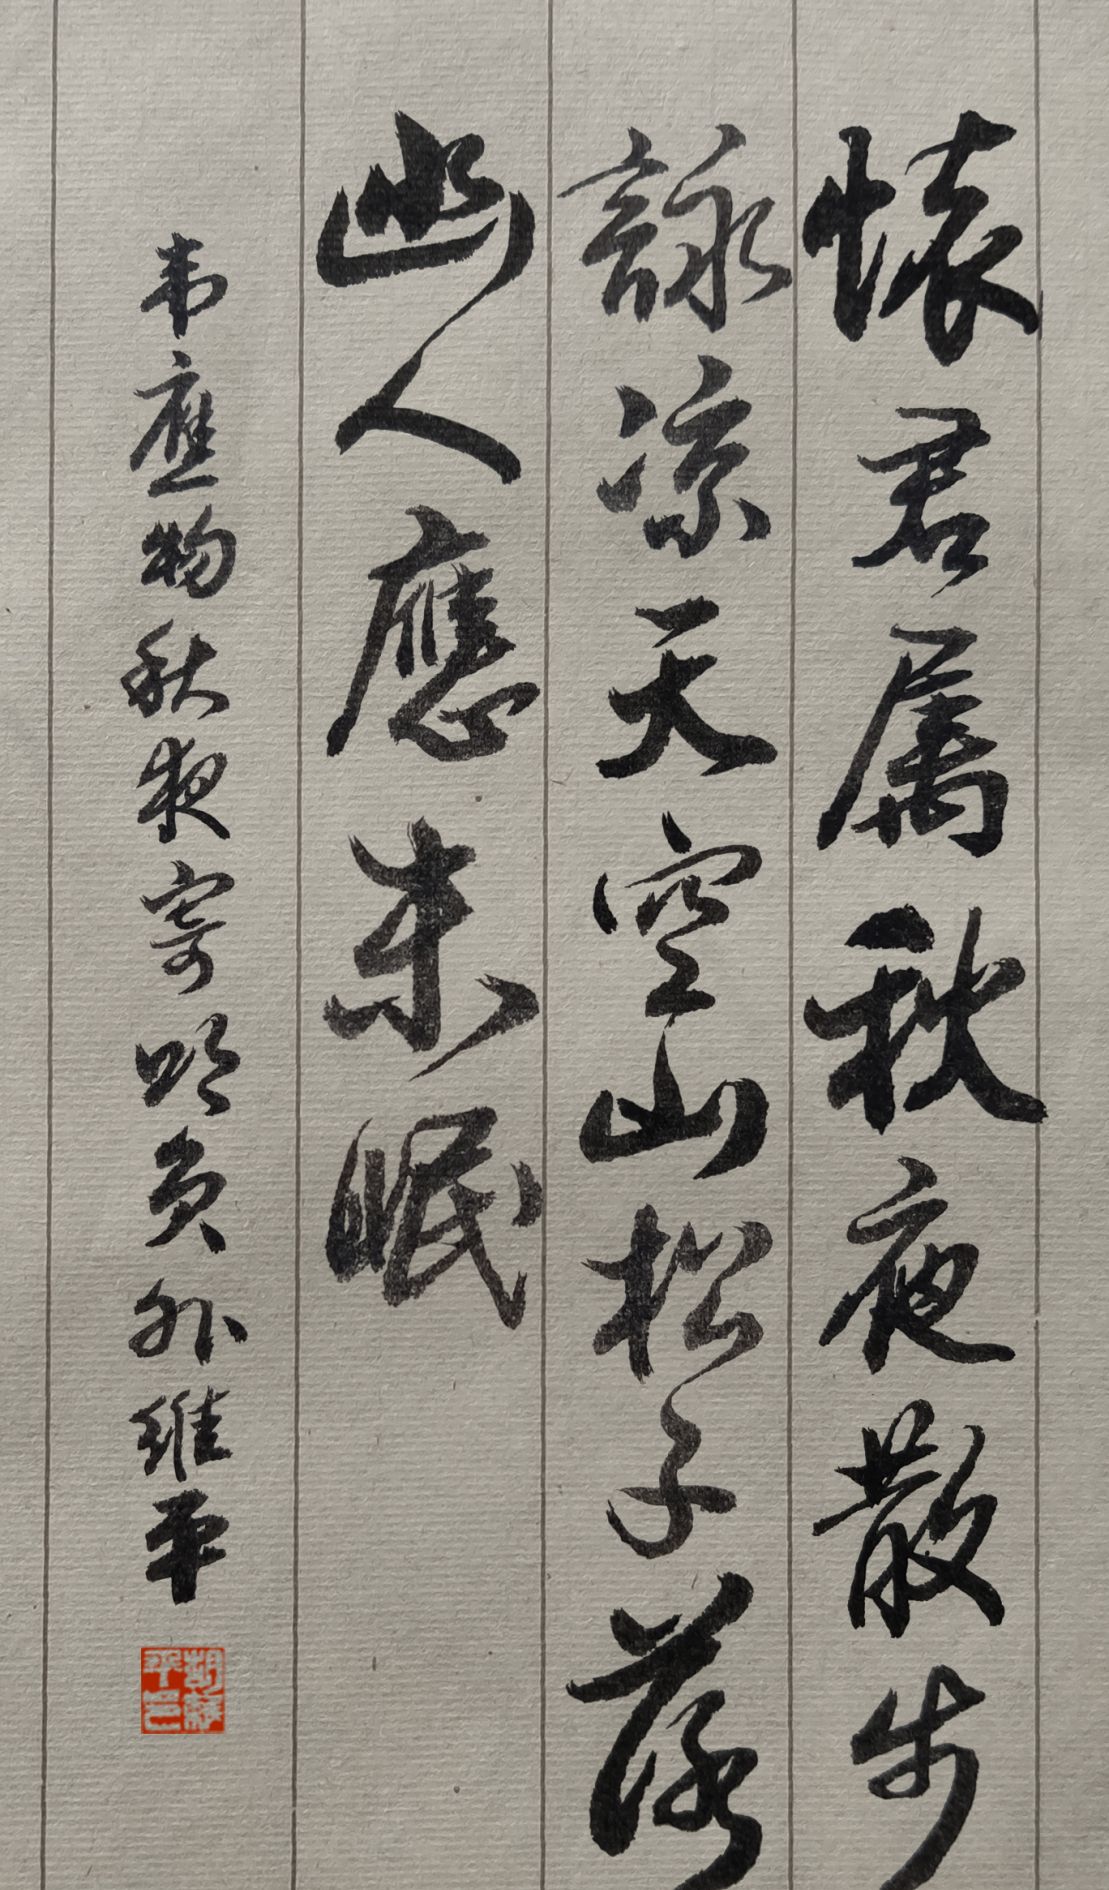 懷君属秋夜散步
詠凉天空山松子落
幽人應未眠
韦應物秋夜寄邱員外維平
胡維平印